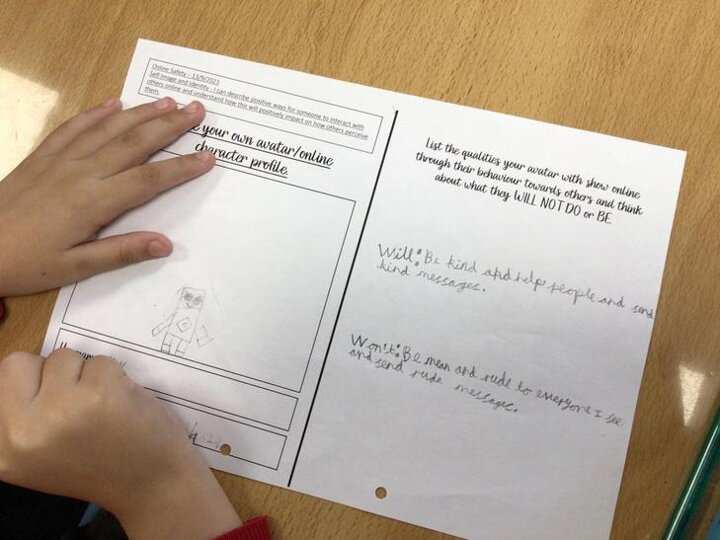 Online Safety – 13/9/2023
Self-Image and Identity - I can describe positive ways for someone to interact with
others online and understand how this will positively impact on how others perceive
them.
your own avatar/online
character profile.
List the qualities your avatar with show online
through their behaviour towards others and think
about what they WILL NOT DO or BE
Will: Be kind and help people and send
kind messages.
Won't: Be mean and rude to everyone I see
and send rude messages.